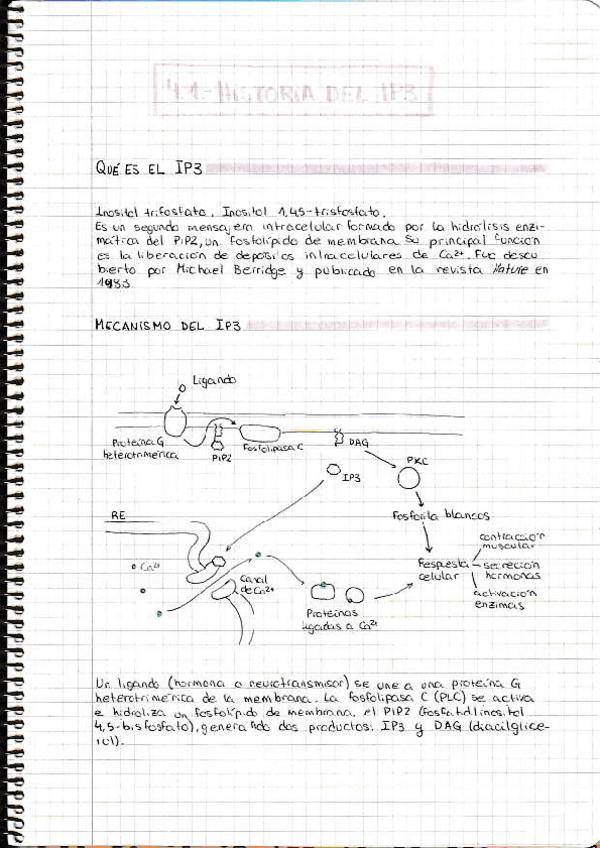 4.1.- HISTORIA DEL IP3
QUÉ ES EL IP3
Inositol trifosfato, Inositol 1,4,5-trisfosfato.
Es un segundo mensajero intracelular formado por la hidrólisis enzi-
mática del PiP2, un fosfolípido de membrana. Su principal función
es la liberación de depósitos intracelulares de Ca2+. Fue descu
bierto por Michael Berridge y publicado en la revista Nature en
1983
MECANISMO DEL IP3
Ligando
Proteína G
heterotrimérica
PiP2
Fosfolipasa C
DAG
IP3
PKC
Fosforila blancos
RE
Ca2+
Canal
de Ca2+
Proteínas
ligadas a Ca2+
Respuesta
celular
contracción
muscular
secreción
hormonas
activación
enzimas
Un ligando (hormona o neurotransmisor) se une a una proteína G
heterotrimérica de la membrana. La fosfolipasa C (PLC) se activa
e hidroliza un fosfolípido de membrana, el PiP2 (fosfatidilinositol
4,5-bisfosfato), generando dos productos: IP3 y DAG (diacilglice-
rol).